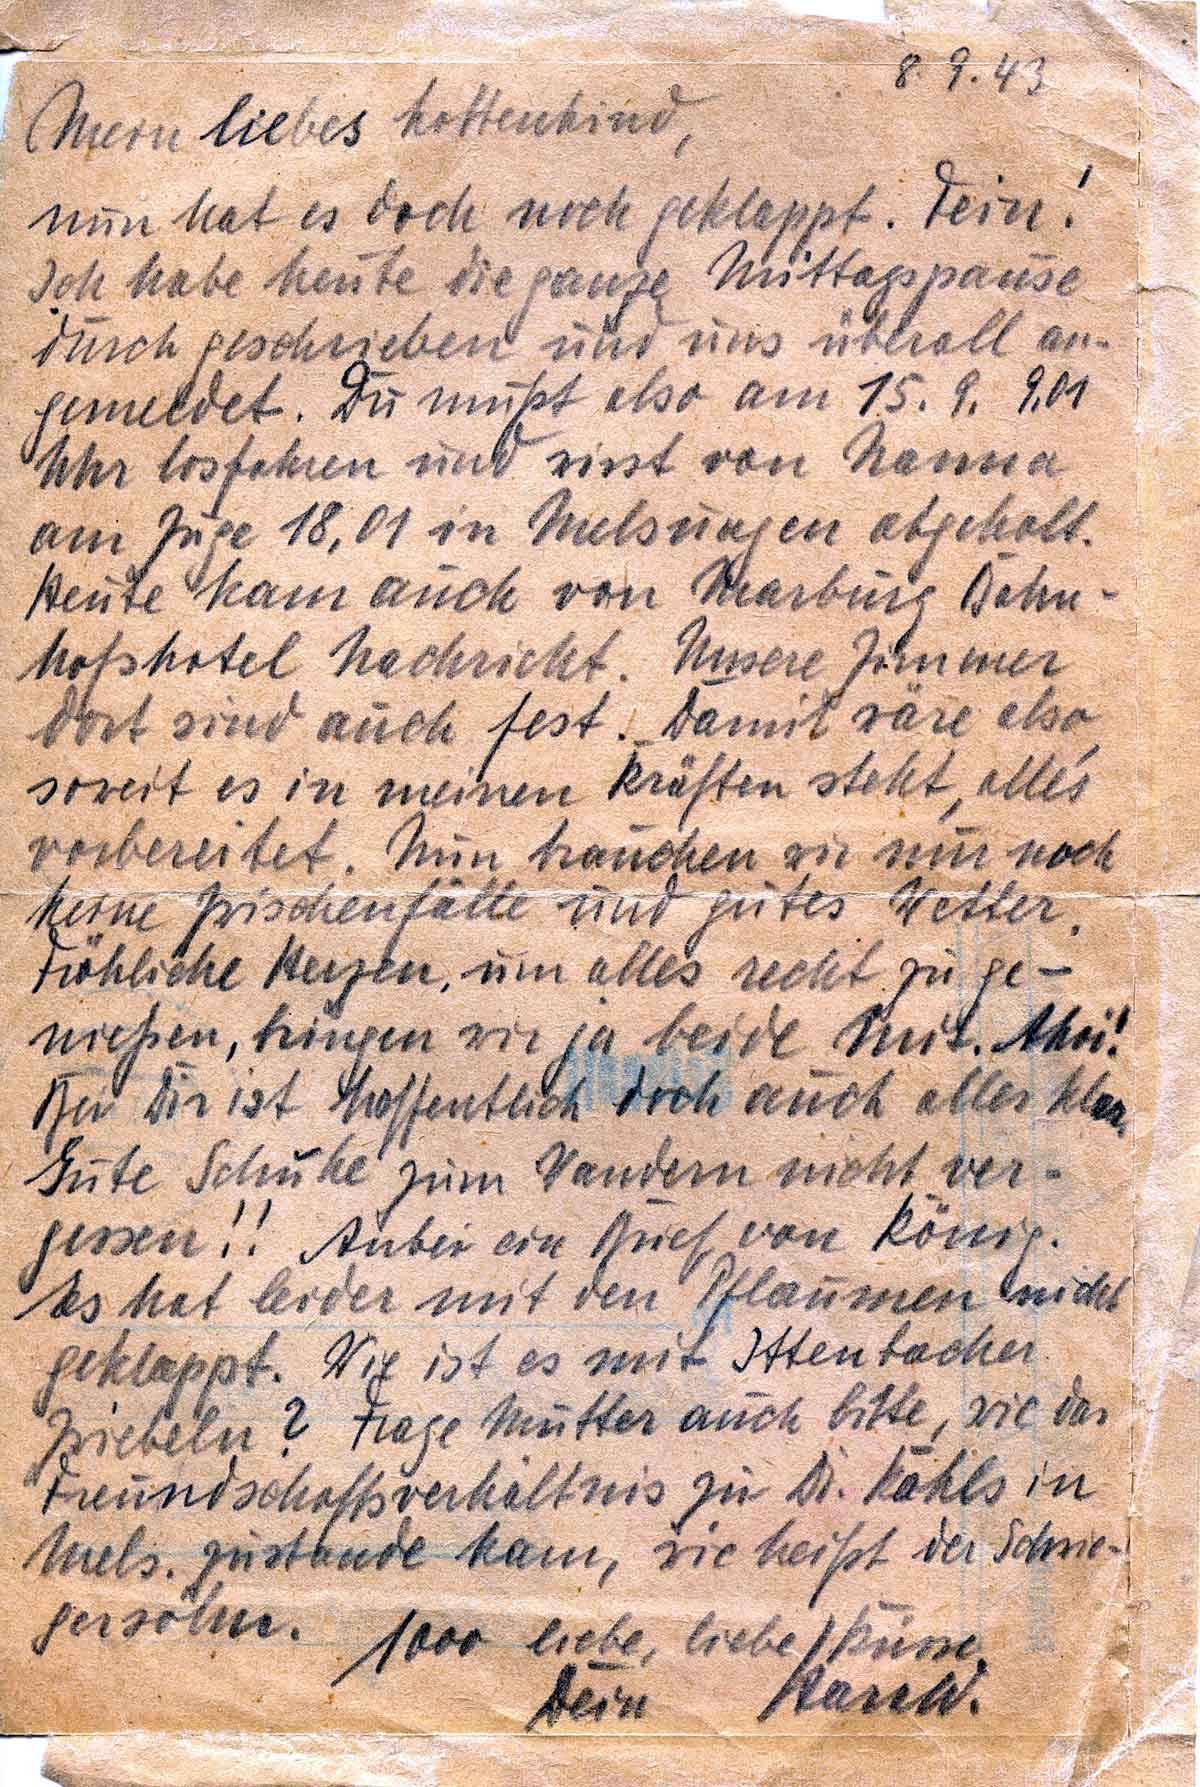 8. 9. 43
Mein liebes Lottenkind,
nun hat es doch noch geklappt. Fein!
Ich habe heute die ganze Mittagspause
durch geschrieben und uns überall an-
gemeldet. Du mußt also am 15. 9. 9.01
Uhr losfahren und wirst von Hanna
am Zuge 18,01 in Melsungen abgeholt.
Heute kam auch von Marburg Bahn-
hofshotel Nachricht. Unsere Zimmer
dort sind auch fest. Damit wäre also,
soweit es in meinen Kräften steht, alles
vorbereitet. Nun brauchen wir nur noch
keine Zwischenfälle und gutes Wetter.
Fröhliche Herzen, um alles recht zu ge-
nießen, bringen wir ja beide mit. Ahoi!
Bei Dir ist hoffentlich doch auch alles klar.
Gute Schuhe zum Wandern nicht ver-
gessen!! Anbei ein Brief von König.
Es hat leider mit den Pflaumen nicht
geklappt. Wie ist es mit Ittenbacher
Zwiebeln? Frage Mutter auch bitte, wie das
Freundschaftsverhältnis zu Dr. Kahls in
Mels. zustande kam, wie heißt der Schwie-
gersohn.
1000 liebe, liebe Küsse
Dein Harald.